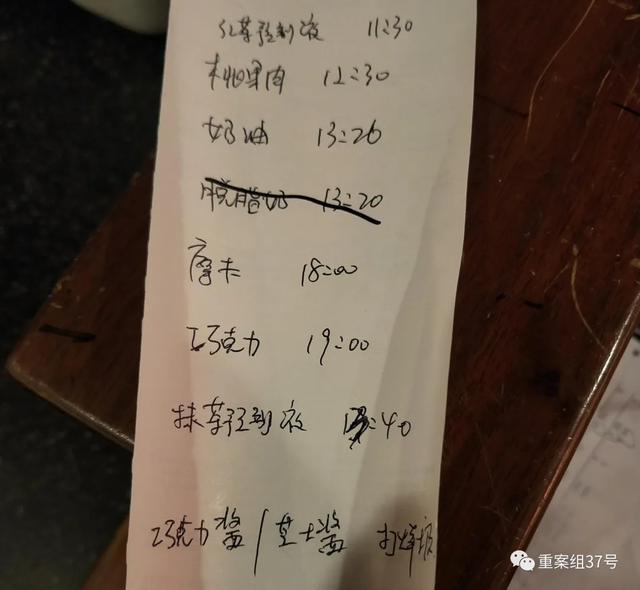 红茶预制液 11:30
桃果肉 12:30
奶油 13:26
脱脂奶 13:20
摩卡 18:00
巧克力 19:00
抹茶预制液
巧克力酱/芝士酱 打烊报
重案组37号